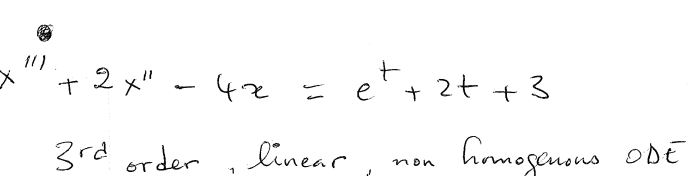 x''' + 2x'' - 4x = e^t + 2t + 3
3rd order, linear, non homogenous ODE